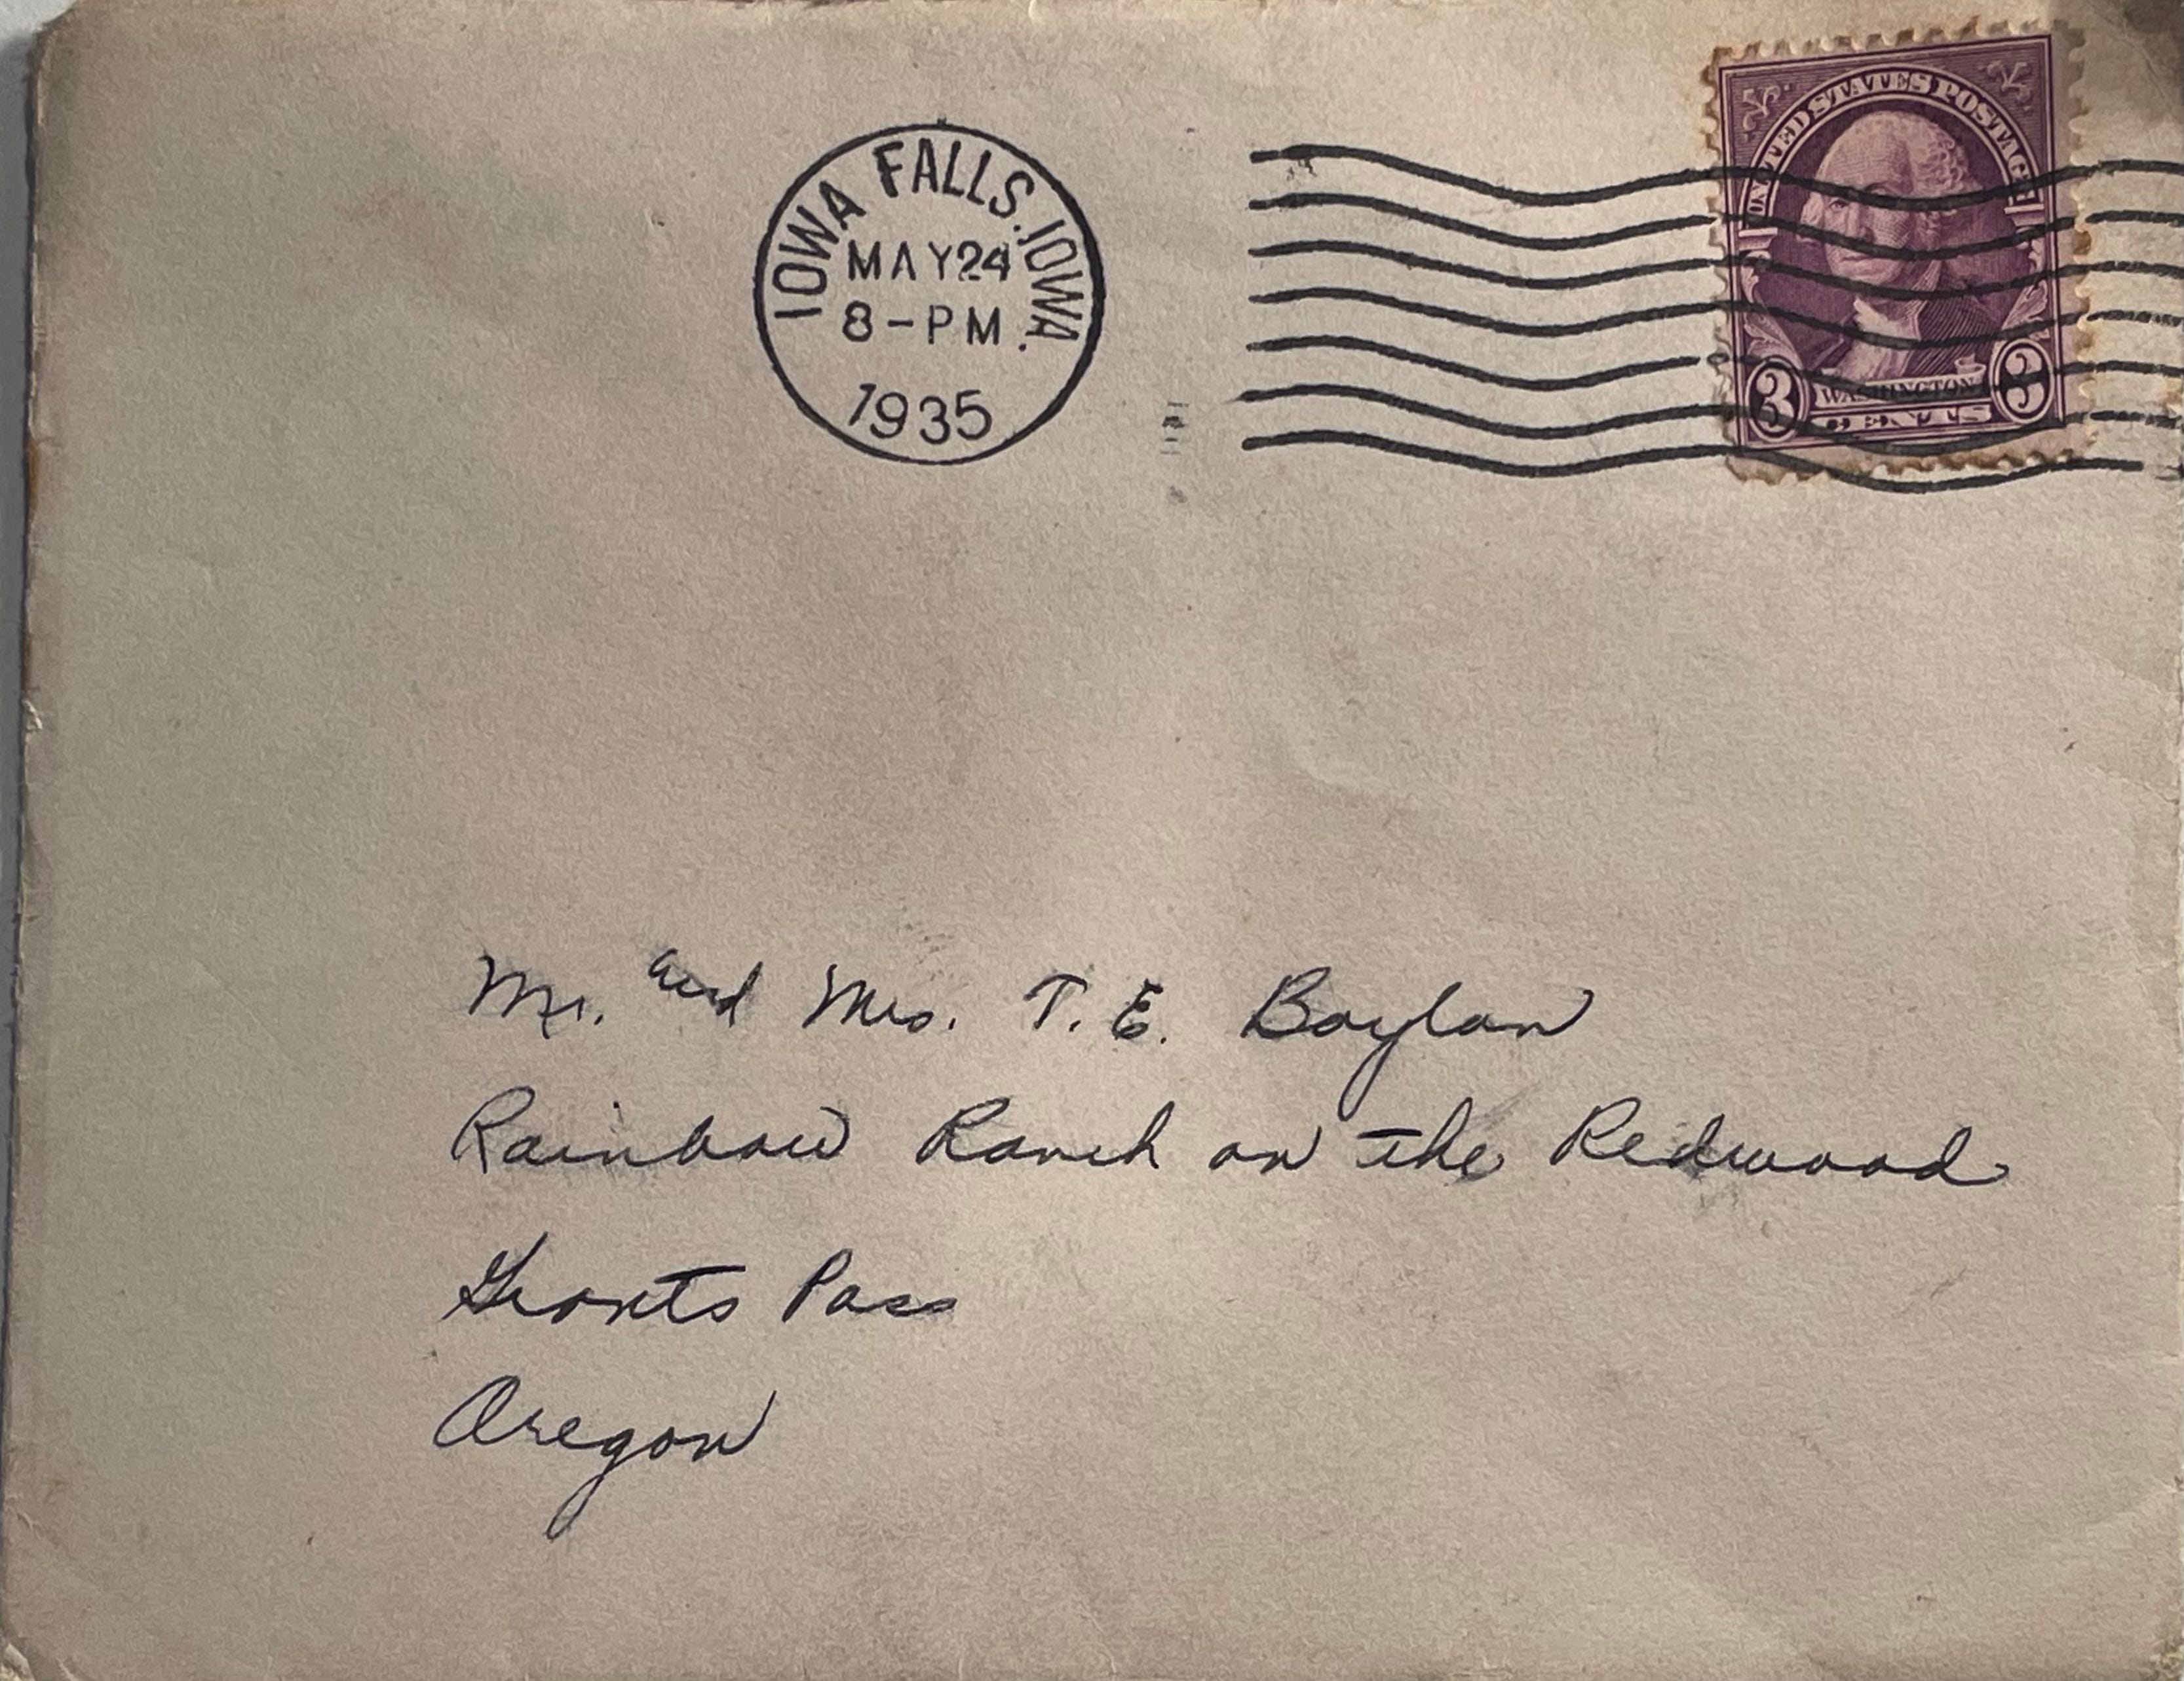 IOWA FALLS. IOWA.
MAY 24
8-PM
1935
UNITED STATES POSTAGE
WASHINGTON
3 CENTS 3
Mr. and Mrs. T. E. Boylan
Rainbow Ranch on the Redwood
Grants Pass
Oregon